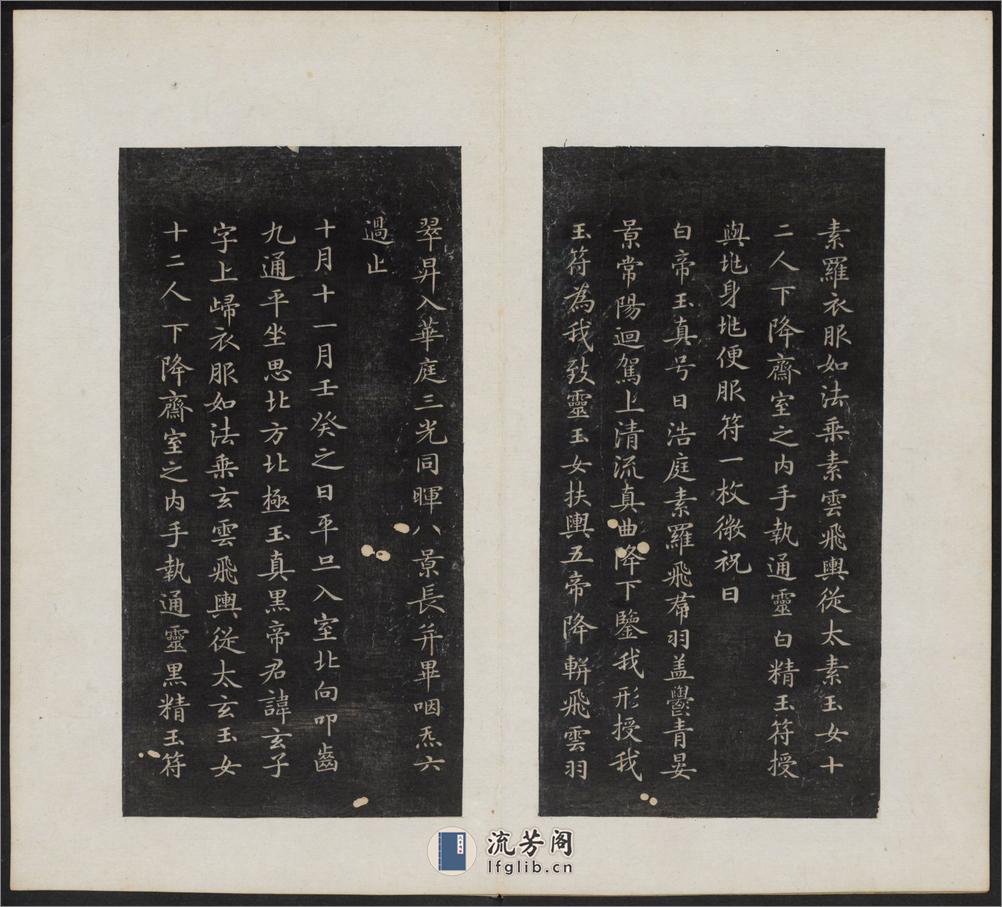 素羅衣服如法乘素雲飛輿從太素玉女十
二人下降齋室之內手執通靈白精玉符授
與地身地便服符一枚微祝曰
白帝玉真号曰浩庭素羅飛帬羽盖鬱青晏
景常陽迴駕上清流真曲降下鑒我形授我
玉符為我致靈玉女扶輿五帝降軿飛雲羽
翠昇入華庭三光同暉八景長并畢咽炁六
過止
十月十一月壬癸之日平旦入室北向叩齒
九通平坐思北方北極玉真黑帝君諱玄子
字上歸衣服如法乘玄雲飛輿從太玄玉女
十二人下降齋室之內手執通靈黑精玉符
流芳阁
lfglib.cn